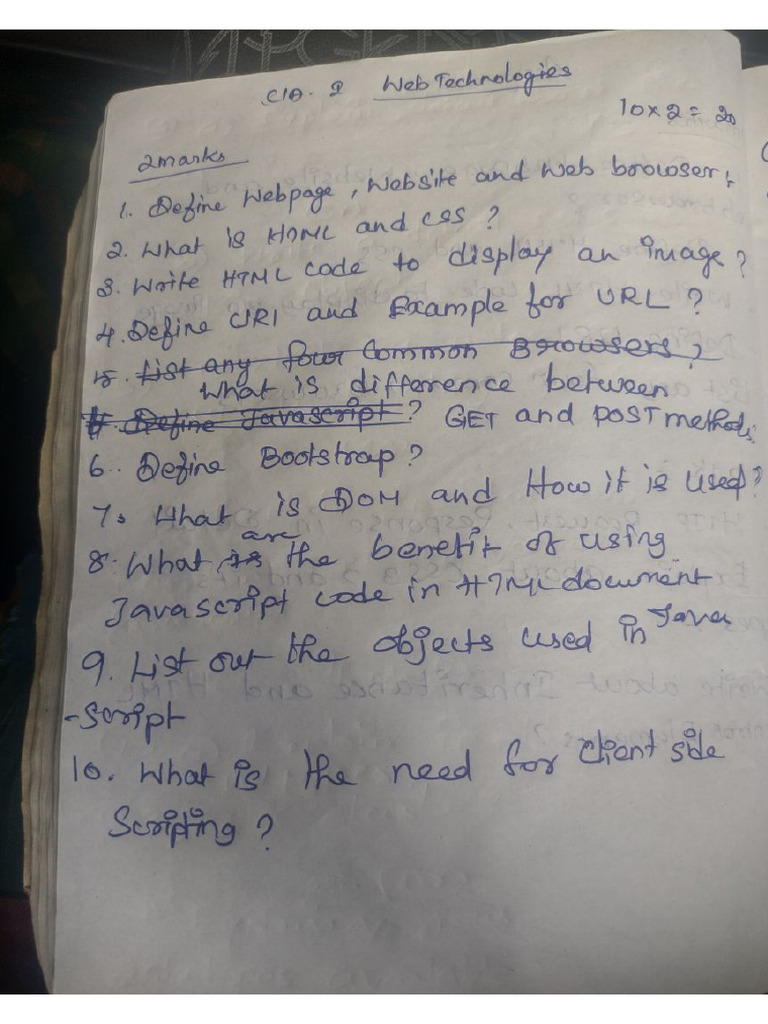 CIA - I Web Technologies
10 x 2 = 20
2marks
1. Define Webpage, Website and Web browser,
2. What is HTML and CSS ?
3. Write HTML code to display an image ?
4. Define URI and Example for URL ?
5. List any four Common Browsers ?
What is difference between
6. Define Javascript ? GET and POST methods.
6. Define Bootstrap ?
7. What is DOM and How it is used ?
are
8. What is the benefit of using
Javascript code in HTML document
9. List out the objects used in Java
-Script
10. What is the need for Client side
Scripting ?